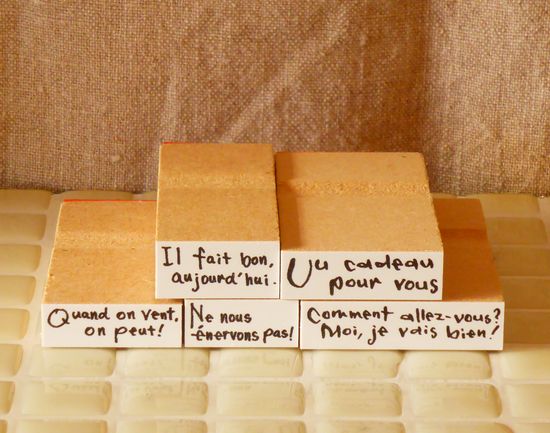 Il fait bon,
aujourd'hui.
Uu cadeau
pour vous
Quand on vent,
on peut!
Ne nous
énervons pas!
Comment allez-vous?
Moi, je vais bien!